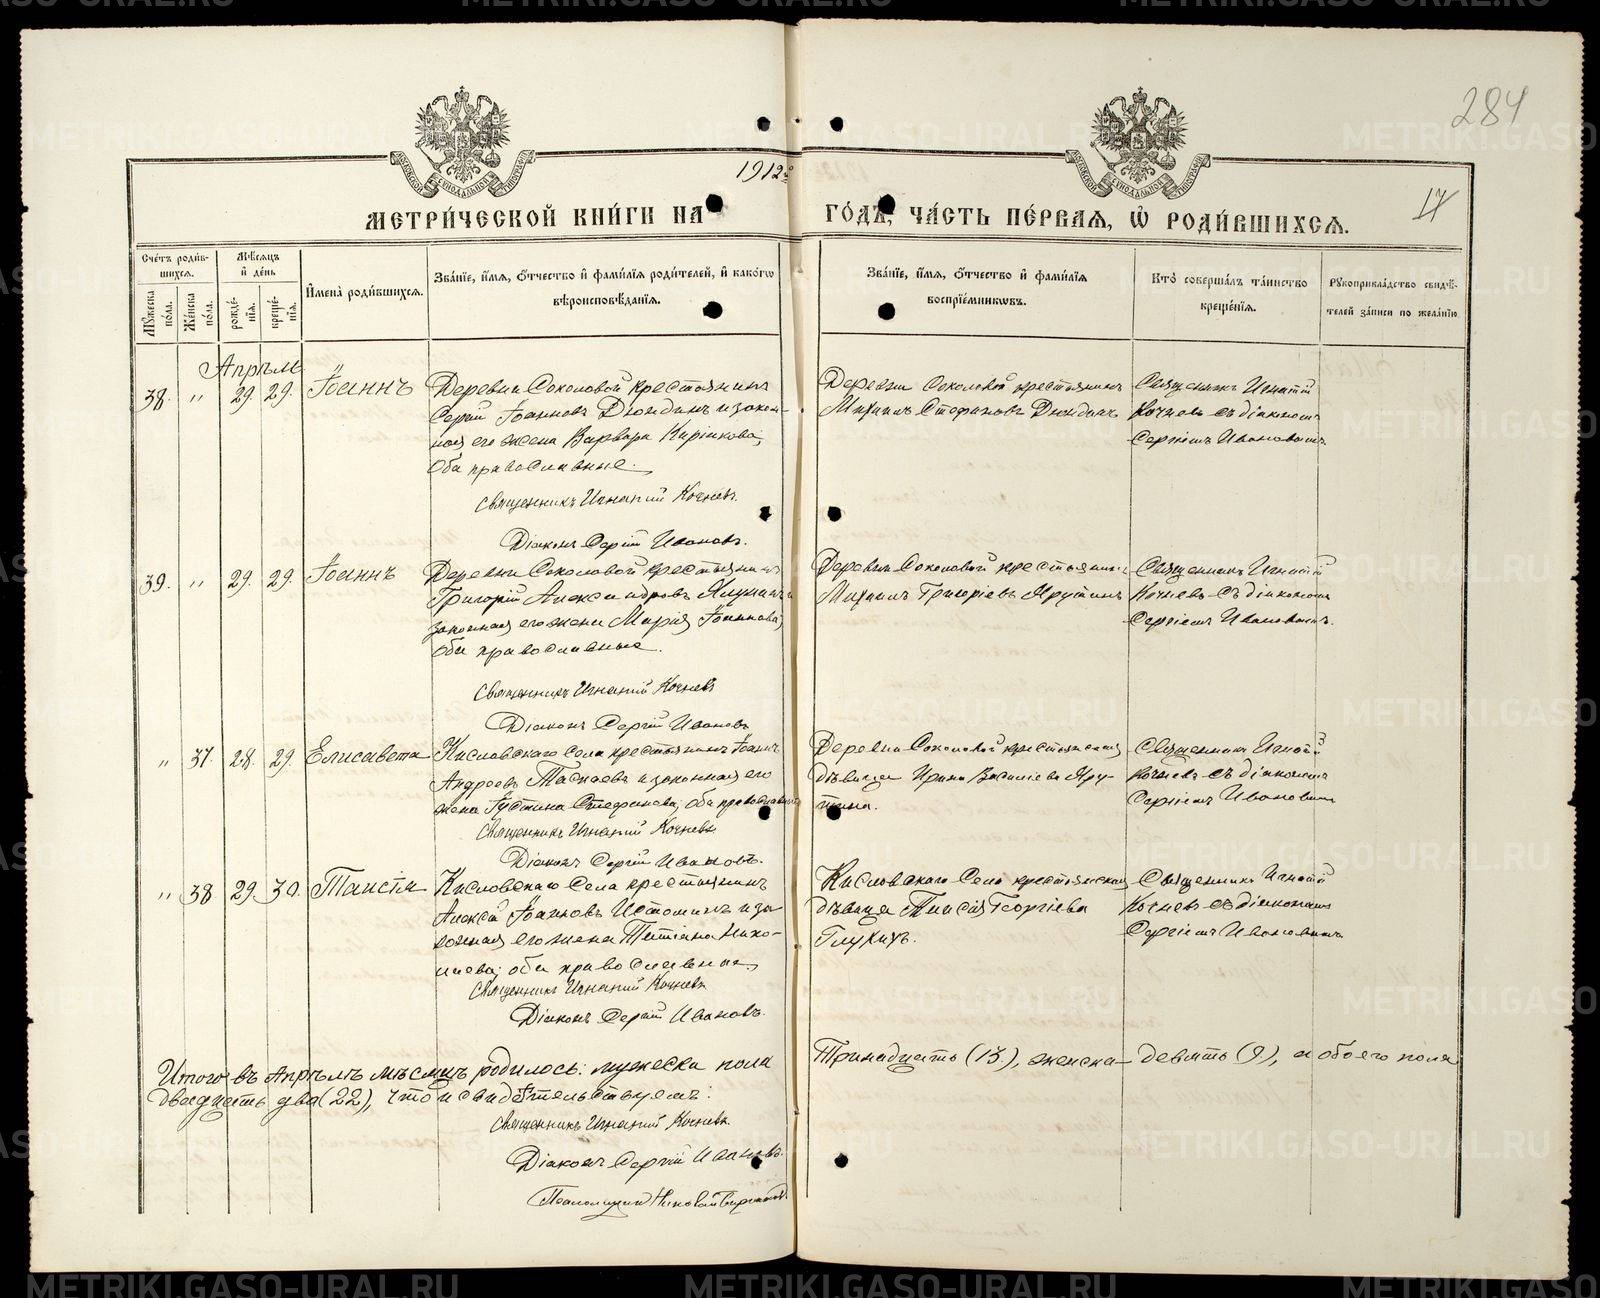 284
17
МОСКОВСКОЙ СѴНОДАЛЬНОЙ ТИПОГРАФІИ
МОСКОВСКОЙ СѴНОДАЛЬНОЙ ТИПОГРАФІИ
1912
МЕТРИ́ЧЕСКОЙ КНИ́ГИ НА ГО́ДЪ, ЧА́СТЬ ПЕ́РВАЯ, Ѡ҆ РОДИ́ВШИХСЯ.
Сче́тъ роди́в-
шихся.
Мꙋ́жеска по́ла.
Же́нска по́ла.
Мѣ́сяцъ и҆ де́нь
рожде́-
нїя.
креще́-
нїя.
И҆мена̀ роди́вшихся.
Зва́нїе, и҆́мя, ѻ҆́тчество и҆ фами́лїя роди́телей, и҆ како́гѡ
вѣроисповѣ́данїя.
Зва́нїе, и҆́мя, ѻ҆́тчество и҆ фами́лїя
воспрїе́мникѡвъ.
Кто̀ соверша́лъ та́инство
креще́нїя.
Рꙋкоприкла́дство свидѣ́-
телей за́писи по жела́нїю
Апрѣль
38. " 29. 29. Іоаннъ
Деревни Соколовой крестьянинъ
Сергій Іоанновъ Дюндинъ и закон-
ная его жена Варвара Кирикова;
оба православные.
Священникъ Игнатий Кочневъ.
Діаконъ Сергій Ивановъ.
Деревни Соколовой крестьянинъ
Михаилъ Стефановъ Дюндинъ
Священникъ Игнатій
Кочневъ съ діакономъ
Сергіемъ Ивановымъ
39. " 29. 29. Іоаннъ
Деревни Соколовой крестьянинъ
Григорій Александровъ и
законная его жена Марія Іоаннова;
оба православные.
Священникъ Игнатий Кочневъ
Діаконъ Сергій Ивановъ
Деревни Соколовой крестьянинъ
Михаилъ Григоріевъ Ярутинъ
Священникъ Игнатій
Кочневъ съ діакономъ
Сергіемъ Ивановымъ.
" 37. 28. 29. Елисавета
Кисловскаго села крестьянинъ Іоаннъ
Андреевъ Таскаевъ и законная его
жена Іустина Стефанова; оба православные
Священникъ Игнатий Кочневъ
Діаконъ Сергій Ивановъ.
Деревни Соколовой крестьянская
дѣвица Ирина Василіева Яру-
тина.
Священникъ Игнатій
Кочневъ съ діакономъ
Сергіемъ Ивановымъ
" 38. 29. 30. Таисія
Кисловскаго села крестьянинъ
Алексій Іоанновъ Истоминъ и за-
конная его жена Татіана Нико-
лаева; оба православные
Священникъ Игнатий Кочневъ
Діаконъ Сергій Ивановъ.
Кисловскаго села крестьянская
дѣвица Таисія Георгіева
Глухихъ.
Священникъ Игнатій
Кочневъ съ діакономъ
Сергіемъ Ивановымъ
Итого въ Апрѣлѣ мѣсяцѣ родилось: мужеска пола Тринадцать (13.), женска девять (9.), а обоего пола
двадцать два (22), что и свидѣтельствуемъ:
Священникъ Игнатий Кочневъ.
Діаконъ Сергій Ивановъ.
Псаломщикъ Николай
METRIKI.GASO-URAL.RU